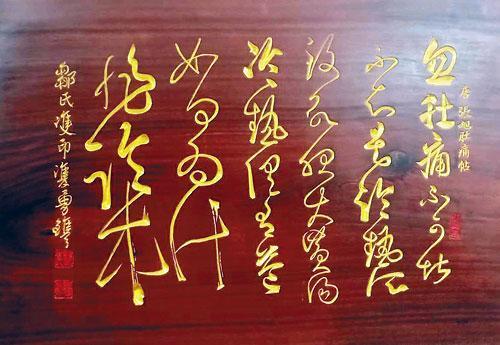 唐 張旭肚痛帖
忽肚痛不可堪
不知是冷熱所
致欲服大黃湯
冷熱俱有益
如何為計
非臨床
氏雙印勇鐫